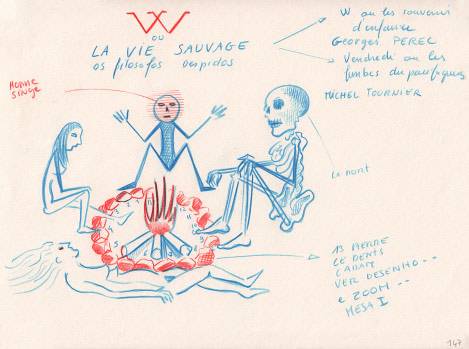 W
ou
LA VIE SAUVAGE
os filosofos despidos
W ou les souvenirs
d'enfance
Georges PEREC
Vendredi ou les
limbes du pacifique
MICHEL TOURNIER
HOMME
SINGE
la mort
13 PIERRE
CE DENTS
VER DESENHO --
e ZOOM --
MESA I
147